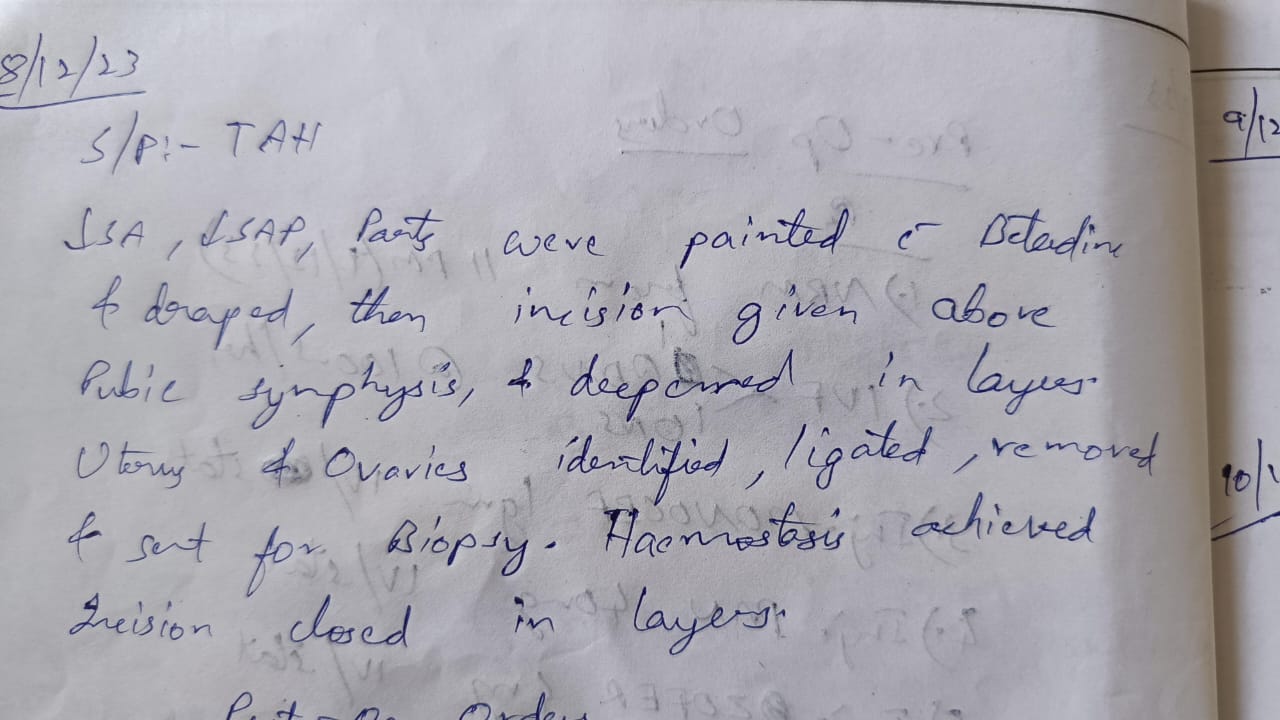 8/12/23
S/P:- TAH
↓SA, ↓SAP, Parts were painted c̄ Betadine
& draped, then incision given above
Pubic symphysis, & deepened in layers.
Uterus & Ovaries identified, ligated, removed
& sent for Biopsy. Haemostasis achieved
Incision closed in layers.
Post-Op Orders
9/12
10/1